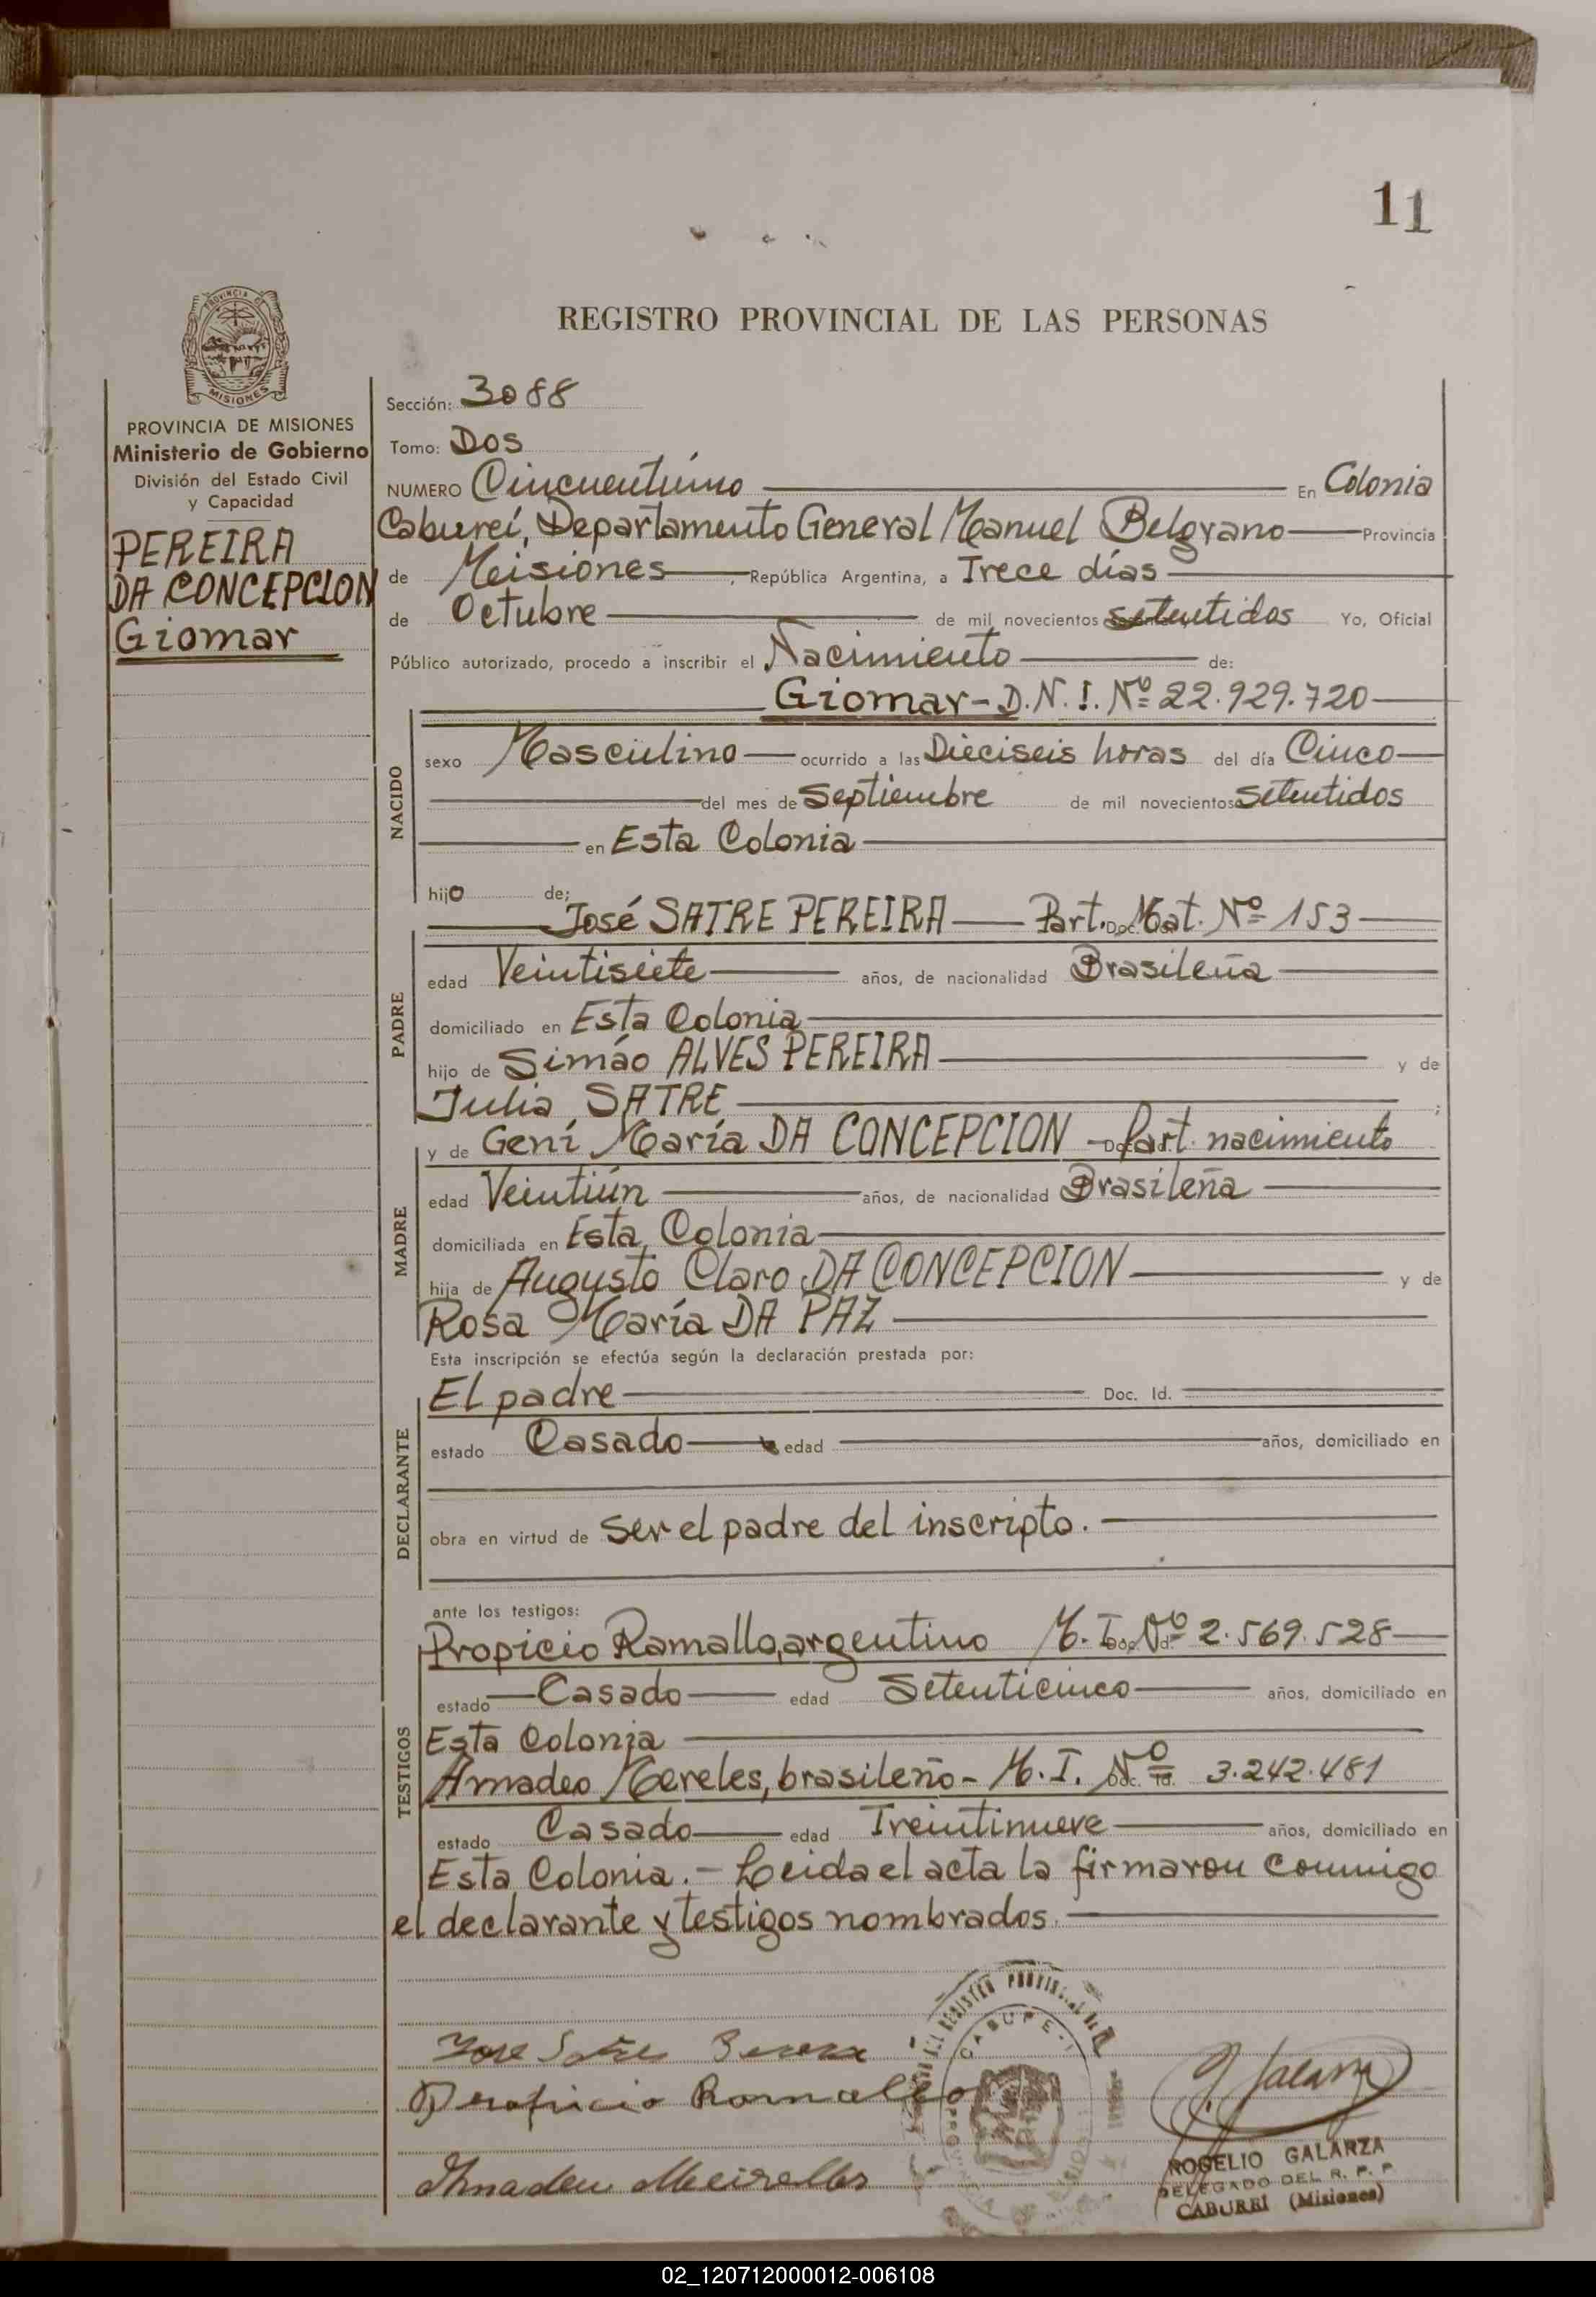 11
PROVINCIA DE
MISIONES
REGISTRO PROVINCIAL DE LAS PERSONAS
PROVINCIA DE MISIONES
Ministerio de Gobierno
División del Estado Civil
y Capacidad
PEREIRA
DA CONCEPCION
Giomar
Sección: 3088
Tomo: DOS
NUMERO Cincuentiuno En Colonia
Caburei, Departamento General Manuel Belgrano Provincia
de Misiones, República Argentina, a Trece días
de Octubre de mil novecientos setentidos Yo, Oficial
Público autorizado, procedo a inscribir el Nacimiento de:
Giomar - D.N.I. Nº 22.929.720
NACIDO
sexo Masculino ocurrido a las Dieciseis horas del día Cinco
del mes de Septiembre de mil novecientos setentidos
en Esta Colonia
hijo de:
José SATRE PEREIRA Part. Mat. Nº 153
PADRE
edad Veintisiete años, de nacionalidad Brasileña
domiciliado en Esta Colonia
hijo de Simáo ALVES PEREIRA y de
Julia SATRE ;
y de Gení María DA CONCEPCION - Part. nacimiento
MADRE
edad Veintiún años, de nacionalidad Brasileña
domiciliada en Esta Colonia
hija de Augusto Claro DA CONCEPCION y de
Rosa María DA PAZ
Esta inscripción se efectúa según la declaración prestada por:
El padre Doc. Id.
DECLARANTE
estado Casado edad años, domiciliado en
obra en virtud de ser el padre del inscripto.
ante los testigos:
Propicio Ramallo, argentino M. I. Nº 2.569.528
TESTIGOS
estado Casado edad Setenticinco años, domiciliado en
Esta Colonia
Amadeo Mereles, brasileño - M. I. Nº 3.242.481
estado Casado edad Treintinueve años, domiciliado en
Esta Colonia. - Leida el acta la firmaron conmigo
el declarante y testigos nombrados.
REGISTRO PROVINCIAL
CABURE-I
Jose Satre
Propicio Ramallo
Amadeu Meirelles
ROGELIO GALARZA
DELEGADO DEL R. P. P.
CABUREI (Misiones)
02_120712000012-006108